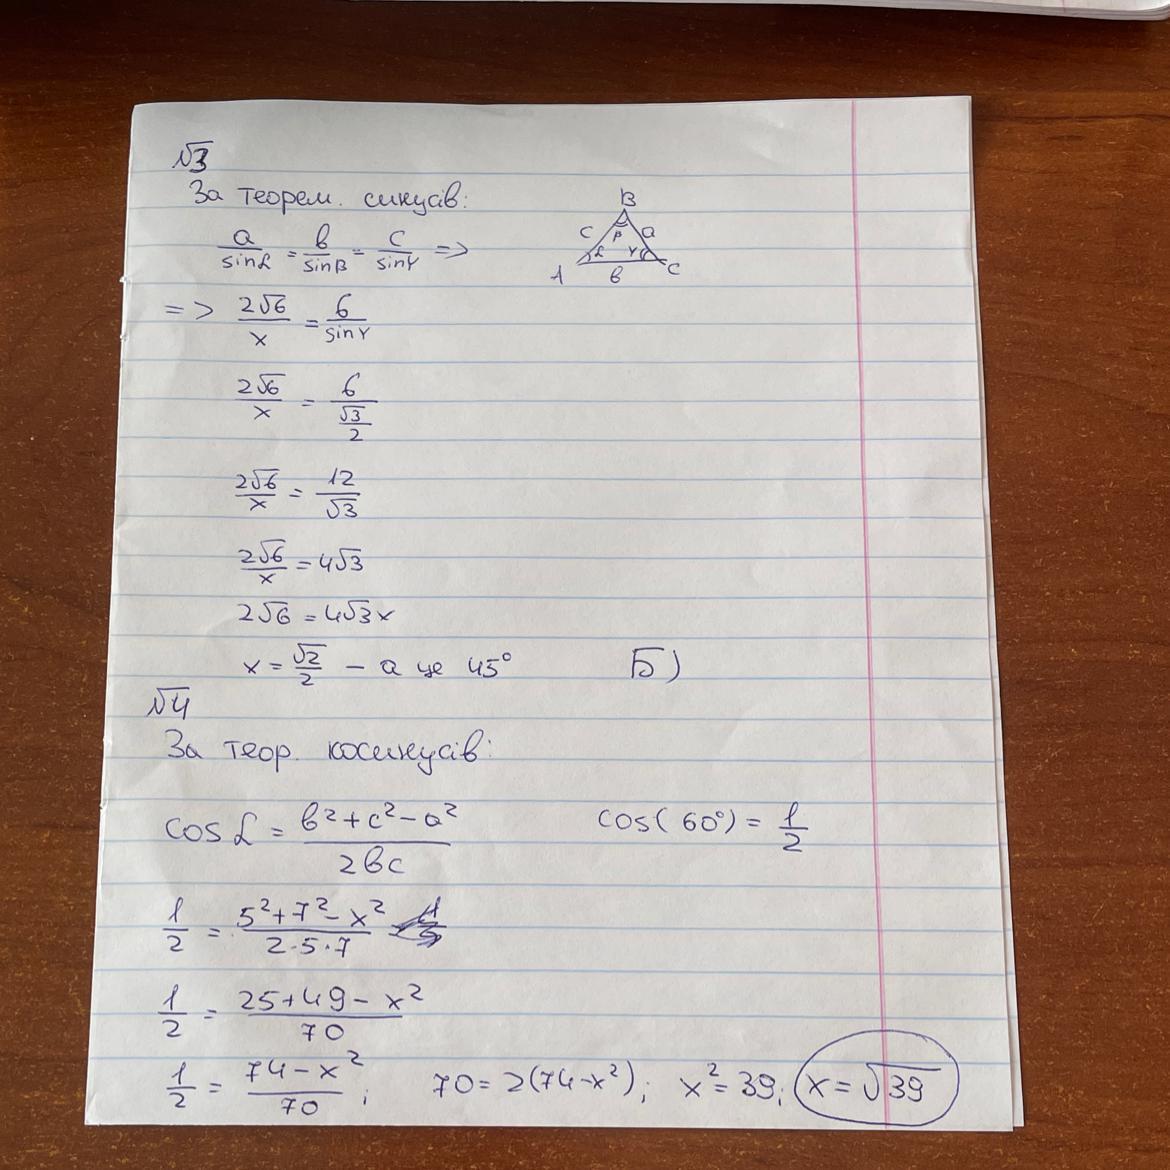 №3
За теорем. синусів:
a/sinα = b/sinβ = c/sinγ =>
B
c β a
α γ
A b C
=> 2√6/x = 6/sinγ
2√6/x = 6/(√3/2)
2√6/x = 12/√3
2√6/x = 4√3
2√6 = 4√3x
x = √2/2 – а це 45° Б)
№4
За теор. косинусів:
cos α = (b²+c²–a²)/2bc cos(60°) = 1/2
1/2 = (5²+7²–x²)/(2·5·7)
1/2 = (25+49–x²)/70
1/2 = (74–x²)/70; 70=2(74–x²); x²=39; x=√39